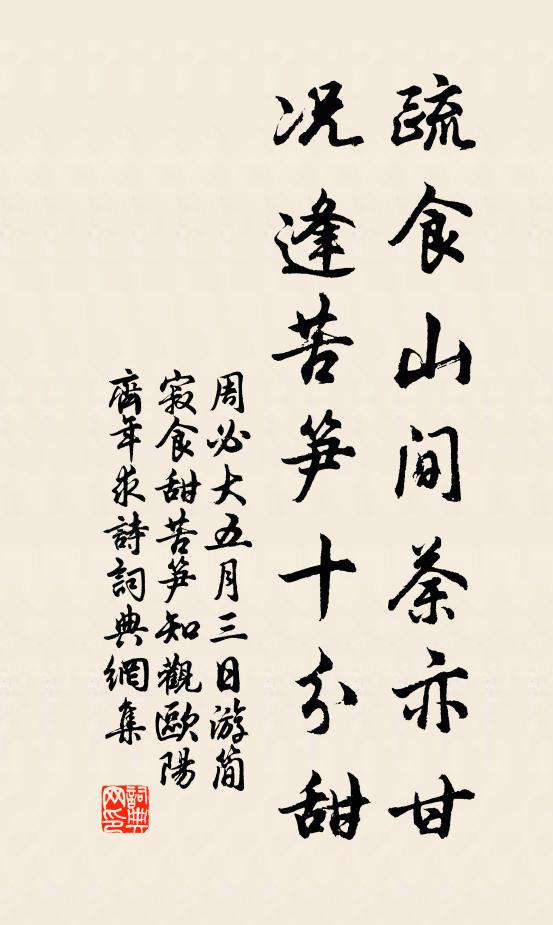 疏食山间茶亦甘
况逢苦笋十分甜
周必大五月三日游简
寂食甜苦笋知觀歐陽
齊年求詩詞典網集
詞典
网印